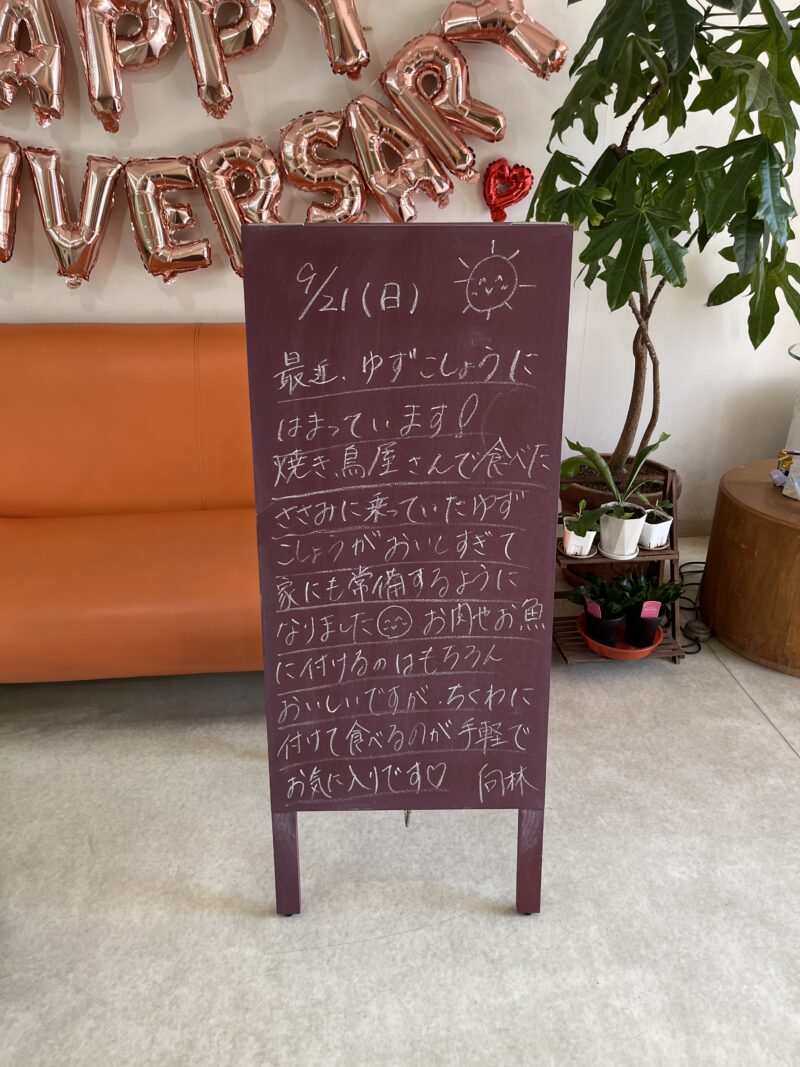 APPY
IVERSARY
9/21(日)
最近、ゆずこしょうに
はまっています!
焼き鳥屋さんで食べた
ささみに乗っていたゆず
こしょうがおいしすぎて
家にも常備するように
なりました お肉やお魚
に付けるのはもちろん
おいしいですが、ちくわに
付けて食べるのが手軽で
お気に入りです♡ 向林